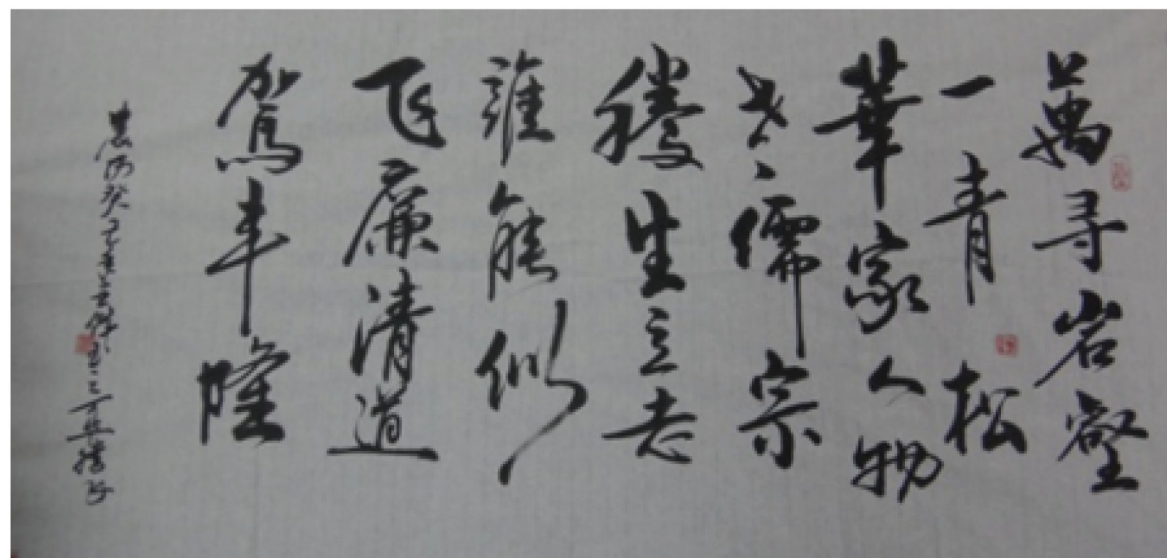 萬寻岩壑
一青松
華家人物
老儒宗
腾生立志
誰能似
飞廉清道
驾丰隆